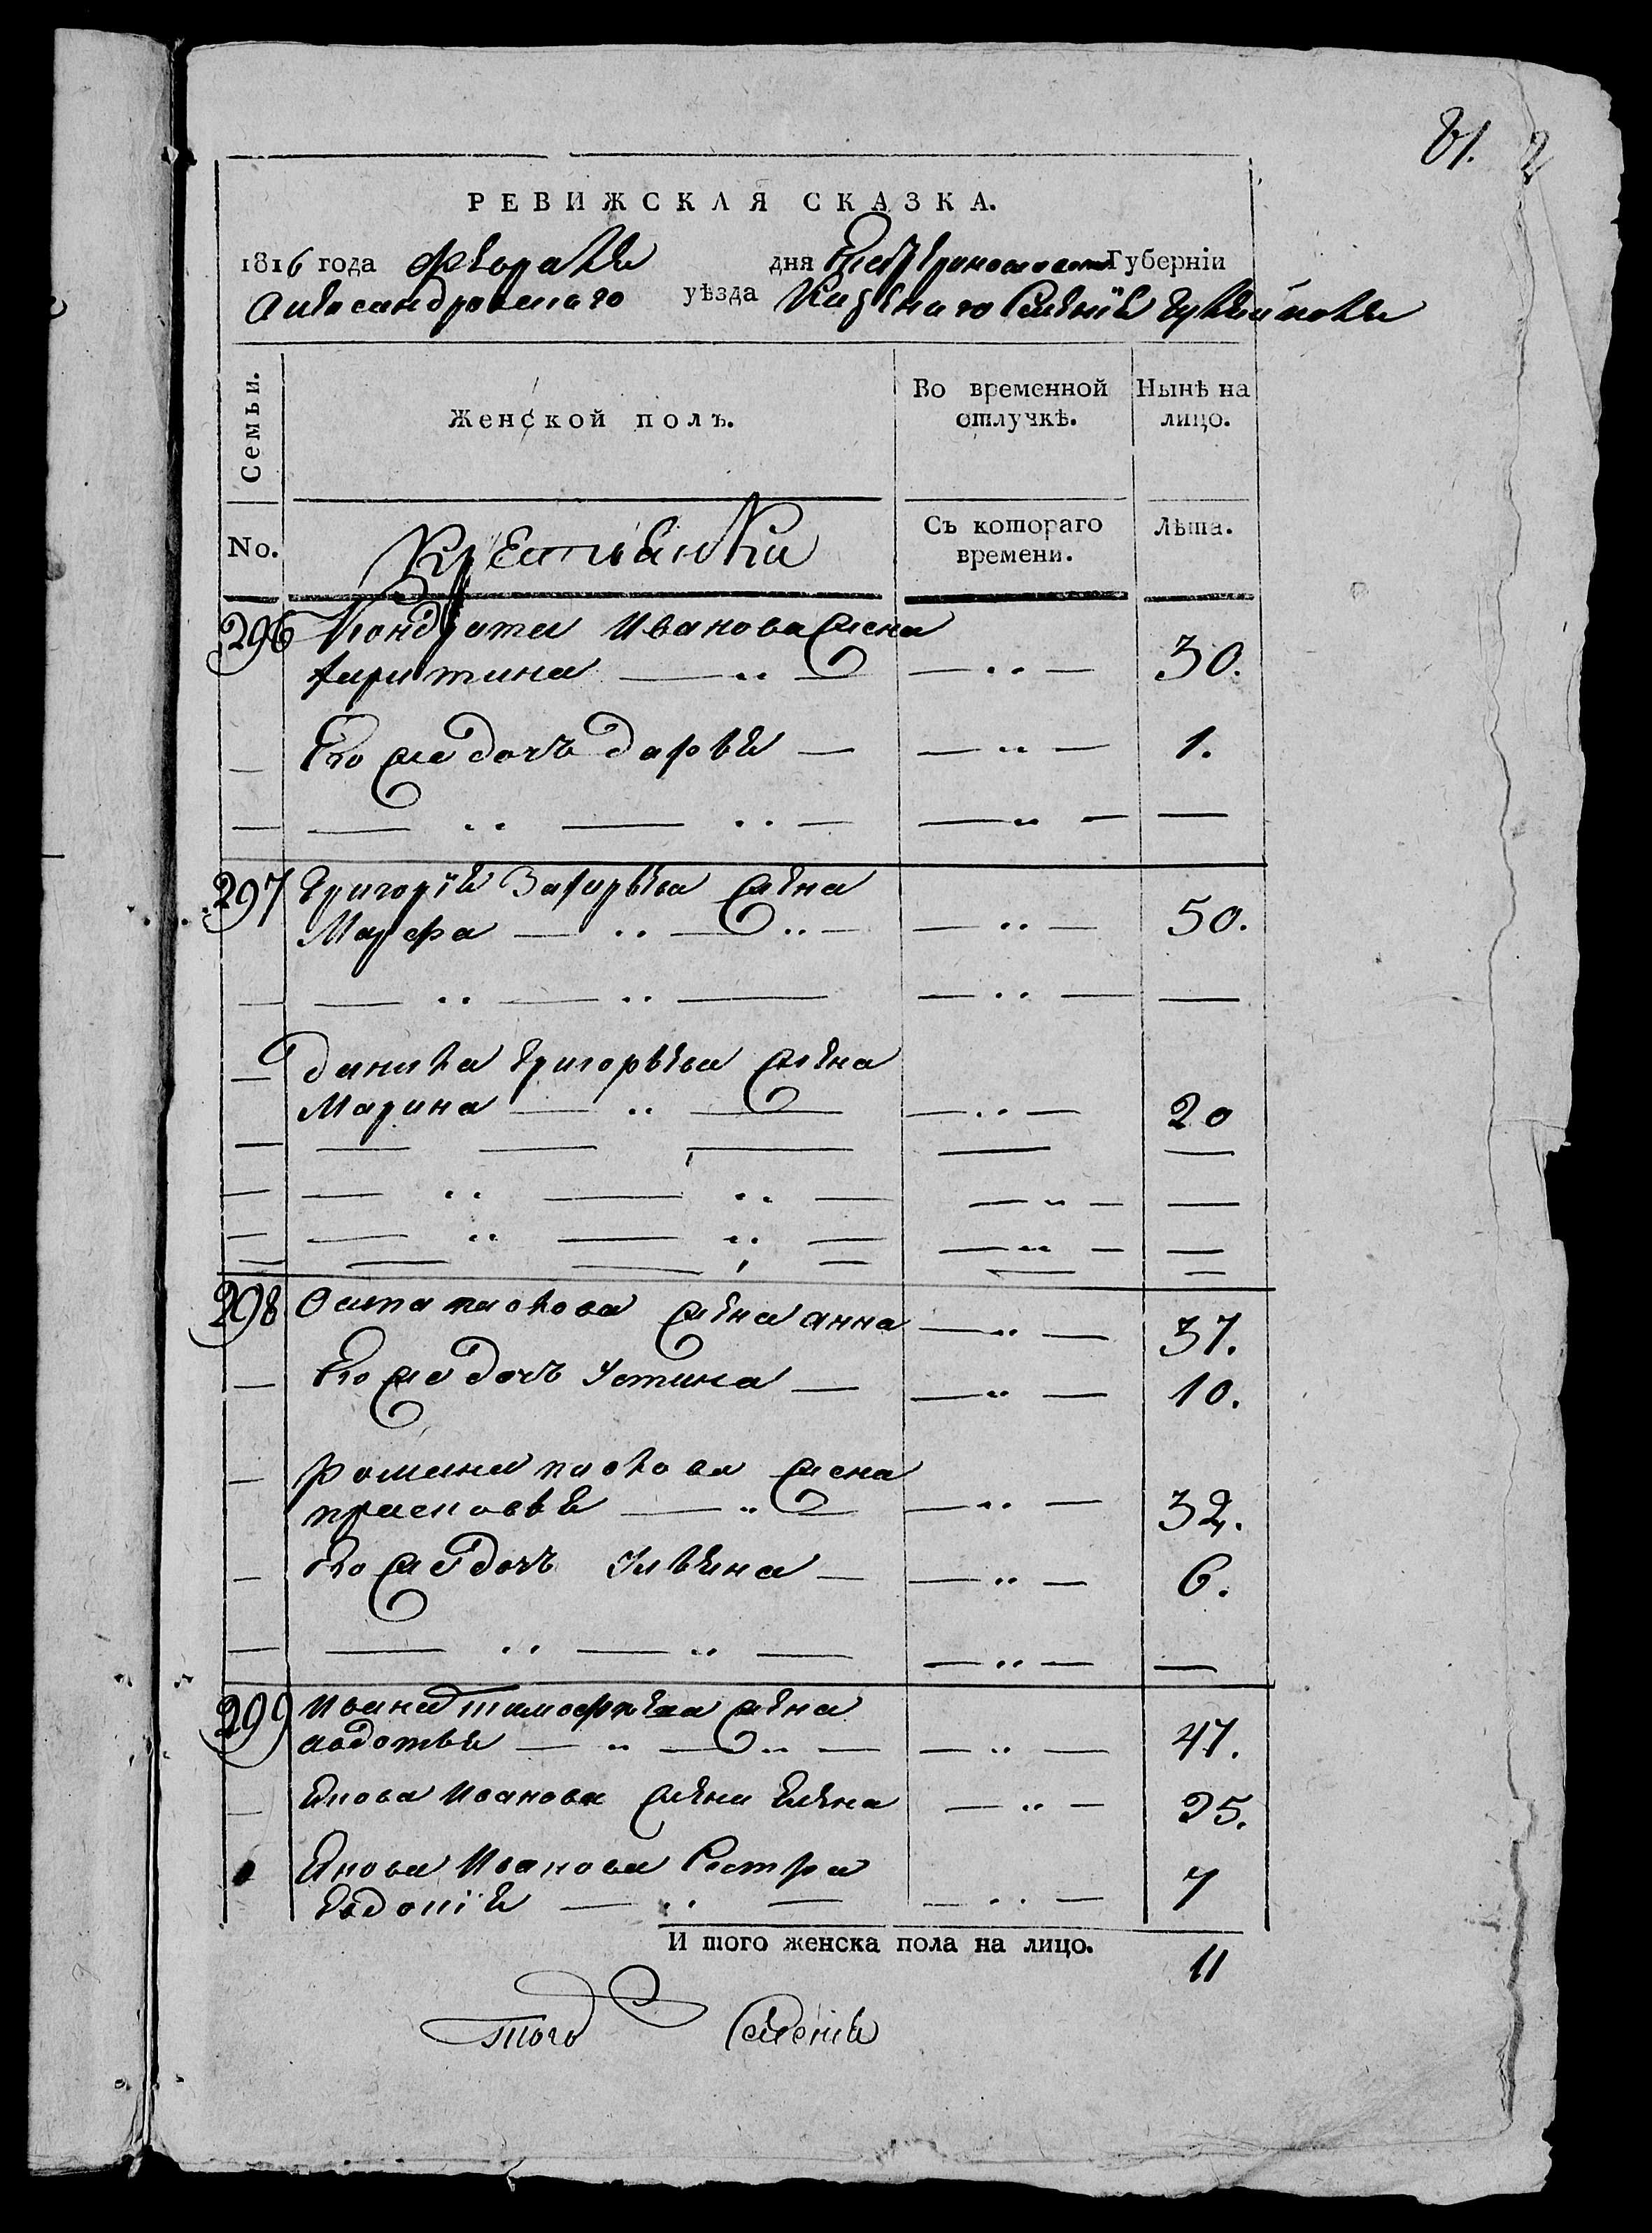 81.
РЕВИЖСКАЯ СКАЗКА.
1816 года февраля дня Екатеринославской Губерніи
Александровского уѣзда Казенного Селенія Гуляйполя
Семьи. Женской полъ. Во временной отлучкѣ. Нынѣ на лицо.
No. Крестьянки Съ котораго времени. Лѣта.
296 Кондрата Иванова жена
Харитина 30.
Его же дочь дарья 1.
297 Григорія Захарьева жена
Марфа 50.
данила Григорьева жена
Марина 20
298 Остапа павлова жена анна 37.
Его же дочь Устина 10.
романа павлова жена
прасковья 32.
Его же дочь Ульяна 6.
299 Ивана тимофѣева жена
авдотья 47.
Якова Иванова жена Елена 25.
Якова Иванова Сестра
Евдокія 7
И того женска пола на лицо. 11
того Селенія